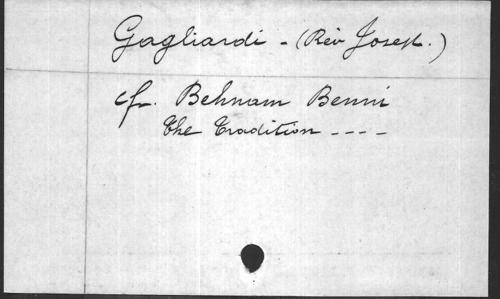 Gagliardi - (Rev Joseph.)
cfr. Behnam Benni
The Tradition ----